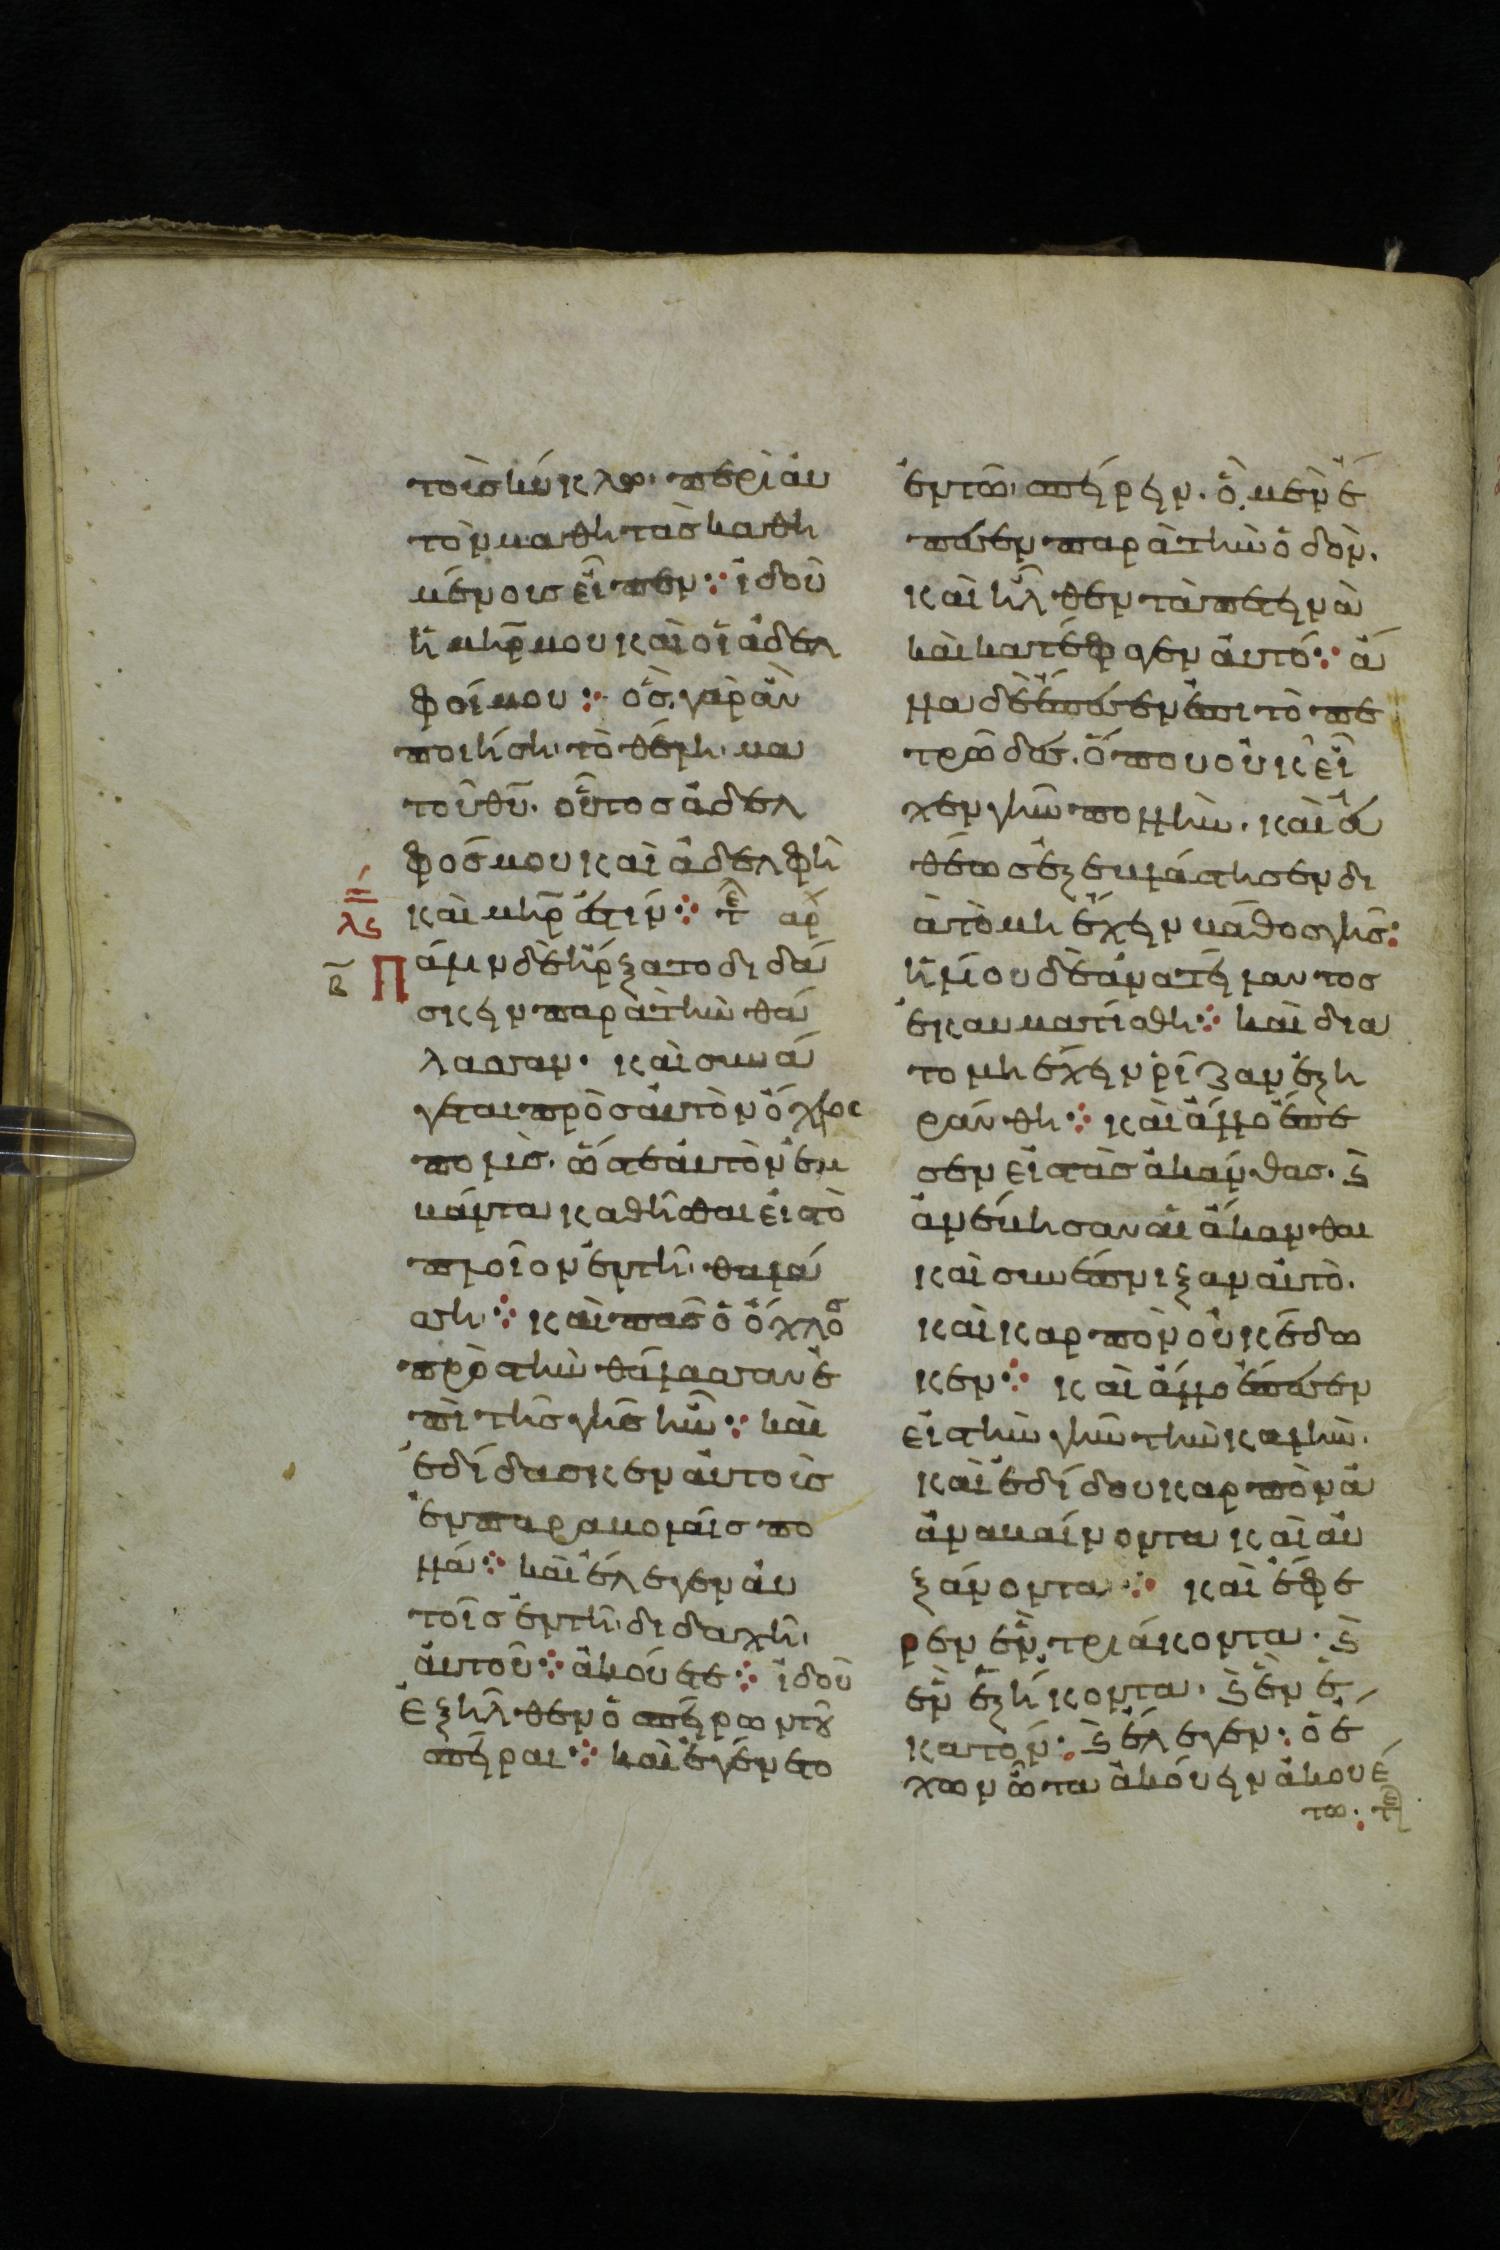 τοὺς κύκλω· περὶ ἀυ
τὸν μαθητὰς καθη
μένους εἶπεν ⁘ ἰδοὺ
ἡ μηρ̄ μου καὶ οἱ ἀδελ
φοί μου ⁘ ὃς γὰρ ἂν
ποιήση· τὸ θέλημα
τοῦ θῡ. οὗτος ἀδελ
φός μου καὶ ἀδελφὴ
καὶ μηρ̄ ἐστιν ⁘ τε̄ αρχ
λϛ
β̄
Πάλιν δὲ ἤρξατο διδά
σκειν παρὰ τὴν θά
λασσαν· καὶ συνά
γεται πρὸς ἀυτὸν ὄχλος
πολὺς. ὥστε ἀυτὸν ἐμ
βάντα καθῆσθαι εἰς τὸ
πλοῖον ἐν τῆ· θαλά
σση· ⁘ καὶ πᾶς ὁ ὄχλος
πρὸς τὴν θάλασσαν ἐ
πὶ τῆς γῆς ἦν ⁘ καὶ
ἐδίδασκεν ἀυτοὺς
ἐν παραβολαῖς πο
λλά ⁘ καὶ ἔλεγεν ἀυ
τοῖς ἐν τῆ· διδαχῆ·
ἀυτοῦ ⁘ ἀκούετε ⁘ ἰδοὺ
ἐξῆλθεν ὁ σπείρων τοῦ
σπεῖραι ⁘ καὶ ἐγένετο
ἐν τῶ· σπείρειν. ὃ μὲν ἔ
πεσεν παρὰ τὴν ὁδὸν.
καὶ ἦλθεν τὰ πετεινὰ
καὶ κατέφαγεν ἀυτό ⁘ ἄ
λλα δὲ ἔπεσεν ἐπι τὸ πε
τρῶδες. ὅπου οὐκ εἶ
χεν γῆν πολλὴν. καὶ ἐυ
θέως ἐξεβλάστησεν δι
ὰ τὸ μὴ ἔχειν βάθος γῆς ⁘
ἡλίου δὲ ἀνατείλαντος
ἐκαυματίσθη ⁘ καὶ δια
το μὴ ἔχειν ῥίζαν ἐξη
ράνθη ⁘ καὶ ἄλλο ἔπε
σεν εἰς τὰς ἀκάνθας. ϗ
ἀνέβησαν αἱ ἄκανθαι
καὶ συνέπνιξαν ἀυτὸ.
καὶ καρπὸν οὐκ ἔδω
κεν ⁘ καὶ ἄλλο ἔπεσεν
εἰς τὴν γῆν τὴν καλὴν.
καὶ ἐδίδου καρπὸν ἀ
ἀναβαίνοντα καὶ ἀυ
ξάνοντα ⁘ καὶ ἔφε
ρεν ἓν τριάκοντα. ϗ
ἓν ἑξήκοντα. ϗ ἓν ἑ
κατόν ⁘ ϗ ἔλεγεν ⁘ ὁ ἔ
χων ὦτα ἀκούειν ἀκουέ
τω ⁘ τε̄